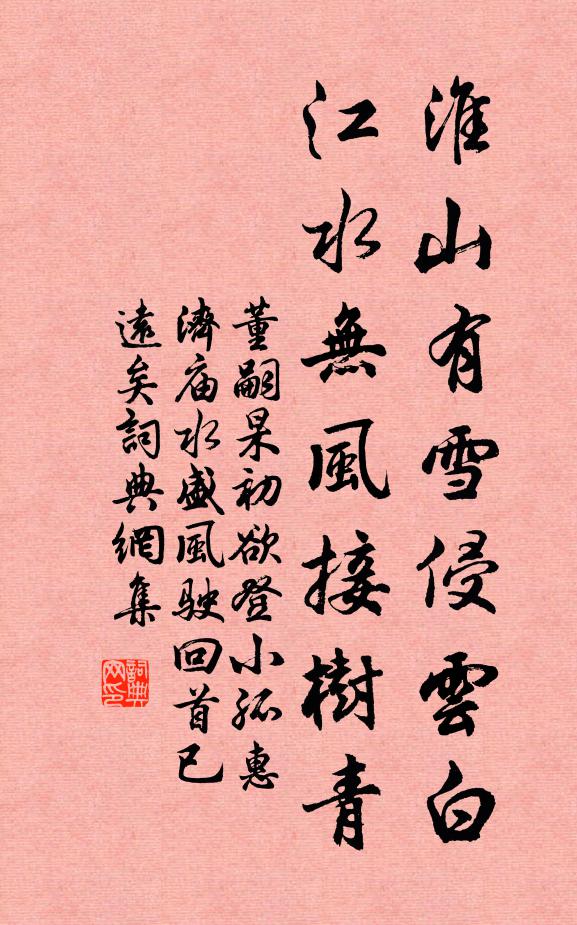 淮山有雪侵雲白
江水無風接樹青
董嗣杲初欲登小孤惠
濟庙水盛風駛回首已
遠矣詞典網集
詞典网印